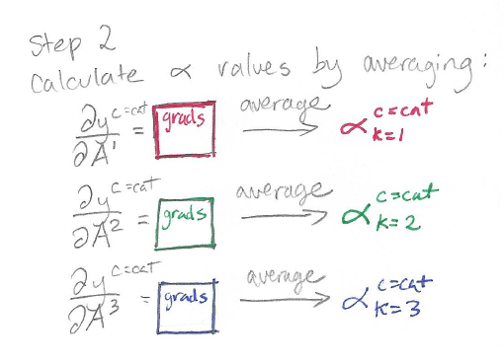 Step 2
Calculate α values by averaging:
∂y^c=cat / ∂A^1 = grads average → α^c=cat k=1
∂y^c=cat / ∂A^2 = grads average → α^c=cat k=2
∂y^c=cat / ∂A^3 = grads average → α^c=cat k=3